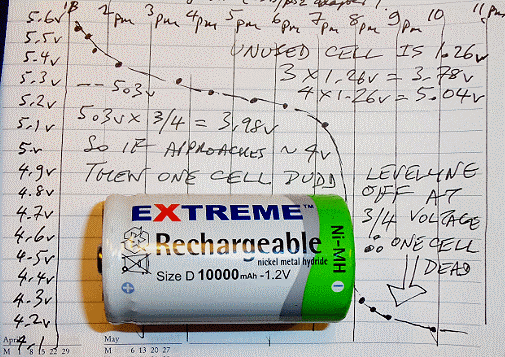 5.6v 1pm 2pm 3pm 4pm 5pm 6pm 7pm 8pm 9pm 10 11pm
5.5v
5.4v
5.3v
5.2v
5.1v
5v
4.9v
4.8v
4.7v
4.6v
4.5v
4.4v
4.3v
4.2v
4.1
UNUSED CELL IS 1.26v
3 X 1.26v = 3.78v
4 X 1.26v = 5.04v
-- 5.03v
5.03v X 3/4 = 3.98v
SO IF APPROACHES ~ 4v
THEN ONE CELL DUDD
LEVELLING
OFF AT
3/4 VOLTAGE
∴ ONE CELL
DEAD
EXTREME™
Rechargeable
nickel metal hydride
Size D 10000mAh -1.2V
Ni-MH
April
M 1 8 15 22 29
May
M 6 13 20 27